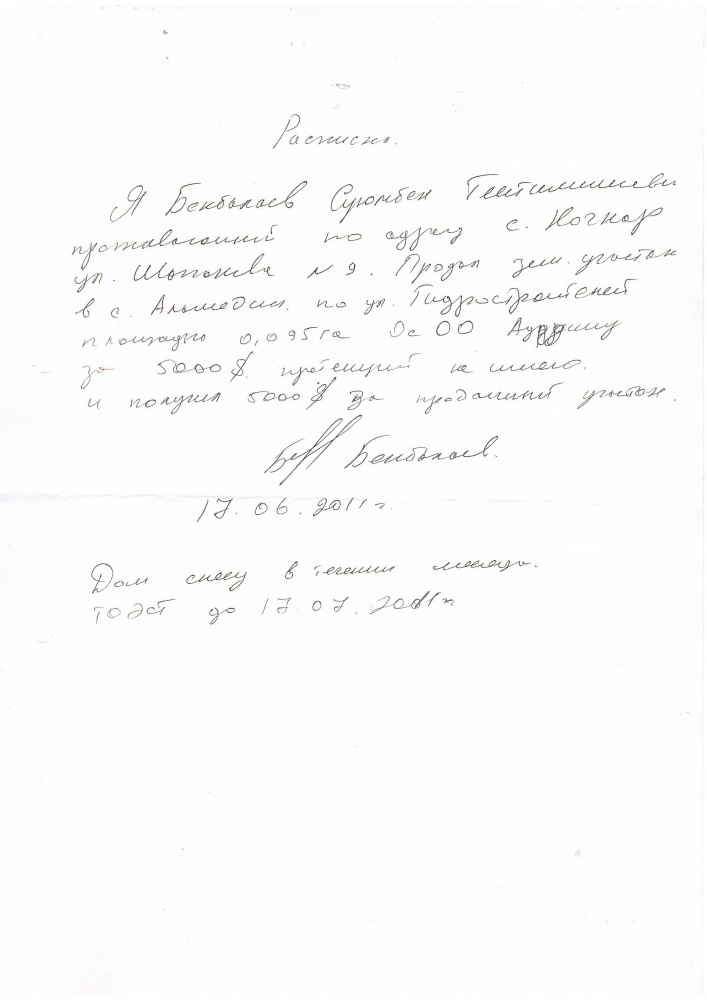 Расписка.
Я Бекбалаев Суюмбек
проживающий по адресу с. Кочкор
ул. Шопокова №9. Продал зем. участок
в с. Аламедин. по ул. Гидростроителей
площадью 0,095 га Ос ОО
за 5000 $. претензий не имею.
и получил 5000 $ за проданный участок.
Бекбалаев.
17.06.2011 г.
Дом снесу в течении месяца.
ТО ЭСТ до 17.07.2011 г